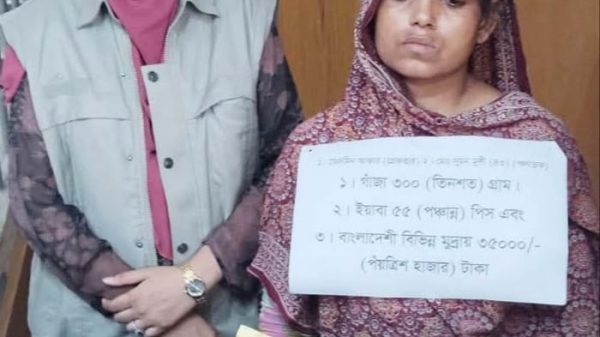 ১। গাঁজা ৩০০ (তিনশত) গ্রাম।
২। ইয়াবা ৫৫ (পঞ্চান্ন) পিস এবং
৩। বাংলাদেশী বিভিন্ন মুদ্রায় ৩৫০০০/-
(পঁয়ত্রিশ হাজার) টাকা